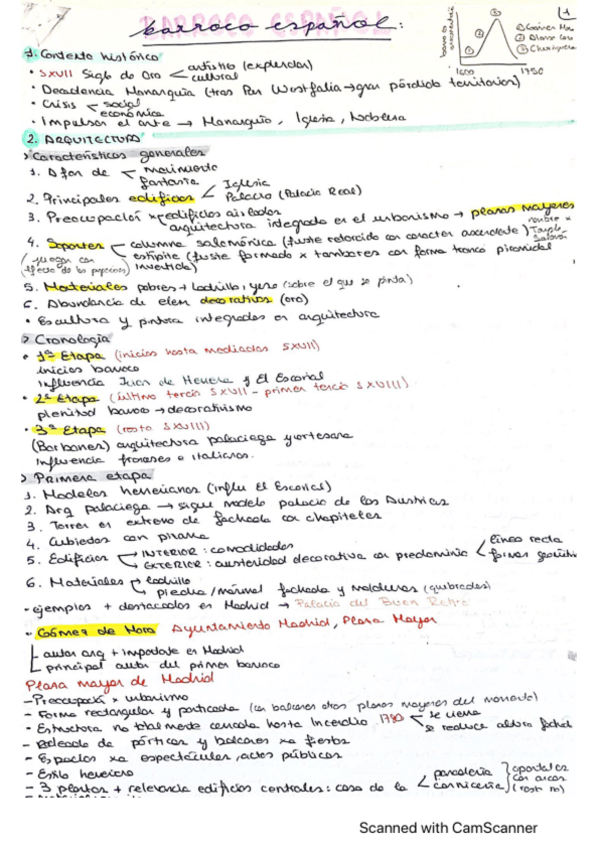 BARROCO ESPAÑOL
barroco español:
1
① Gómez Mora
② Alonso Cano
③ Churriguera
1600 1750
1. Contexto histórico
• SXVII Siglo de Oro < artístico (esplendor)
cultural
• Decadencia Monarquía (tras Paz Westfalia → gran pérdida territorios)
• Crisis < social
económica
• Impulsor el arte → Monarquía, Iglesia, Nobleza
2. ARQUITECTURA
> Características generales
1. Afán de < movimiento
fantasía
2. Principales edificios < Iglesia
Palacio (Palacio Real)
3. Preocupación x edificios aislados
arquitectura integrada en el urbanismo → plazas mayores
4. Soportes < columna salomónica (fuste retorcido con caracter ascendente)
nombre x
Templo
Salomón
estípite (fuste formado x tambores con forma tronco piramidal
invertida)
(juegan con
efecto de los
5. Materiales pobres + ladrillo, yeso (sobre el que se pinta)
6. Abundancia de elem decorativos (oro)
• Escultura y pintura integradas en arquitectura
> Cronología
• 1ª Etapa (inicios hasta mediados SXVII)
inicios barroco
influencia Juan de Herrera y El Escorial
• 2ª Etapa (último tercio SXVII - primer tercio SXVIII)
plenitud barroco → decorativismo
• 3ª Etapa (resto SXVIII)
(Borbones) arquitectura palaciega y cortesana
influencia franceses e italianos.
> Primera etapa
1. Modelos herrerianos (influ El Escorial)
2. Arq palaciega → sigue modelo palacio de los Austrias
3. Torres en extremo de fachada con chapiteles
4. Cubiertas con pizarra
5. Edificios < INTERIOR: comodidades
EXTERIOR: austeridad decorativa con predominio < línea recta
formas geométric
6. Materiales < ladrillo
piedra/mármol fachada y molduras (quebradas)
• ejemplos + destacados en Madrid → Palacio del Buen Retiro
• Gómez de Mora Ayuntamiento Madrid, Plaza Mayor
autor arq + importante en Madrid
principal autor del primer barroco
Plaza mayor de Madrid
- Preocupación x urbanismo
- Forma rectangular y porticada (con balcones otras plazas mayores del momento)
- Estructura no totalmente cerrada hasta Incendio 1790 < se cierra
se reduce altura fachad
- Rodeado de pórticos y balcones xa fiestas
- Espacios xa espectáculos, actos públicos
- Estilo herreriano
- 3 plantas + relevancia edificios centrales: casa de la < panadería
carnicería
Scanned with CamScanner